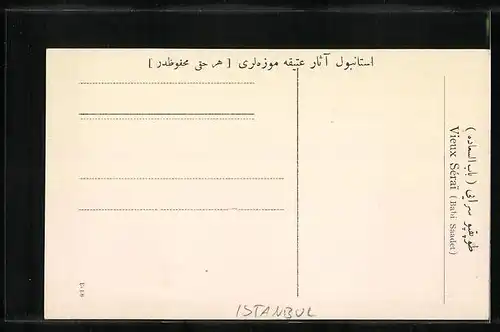 استانبول آثار عتيقه موزه‌لرى [ هر حق محفوظدر ]
طوپقپو سرايى ( باب السعاده )
Vieux Séraï ( Babi Saadet )
ISTANBUL